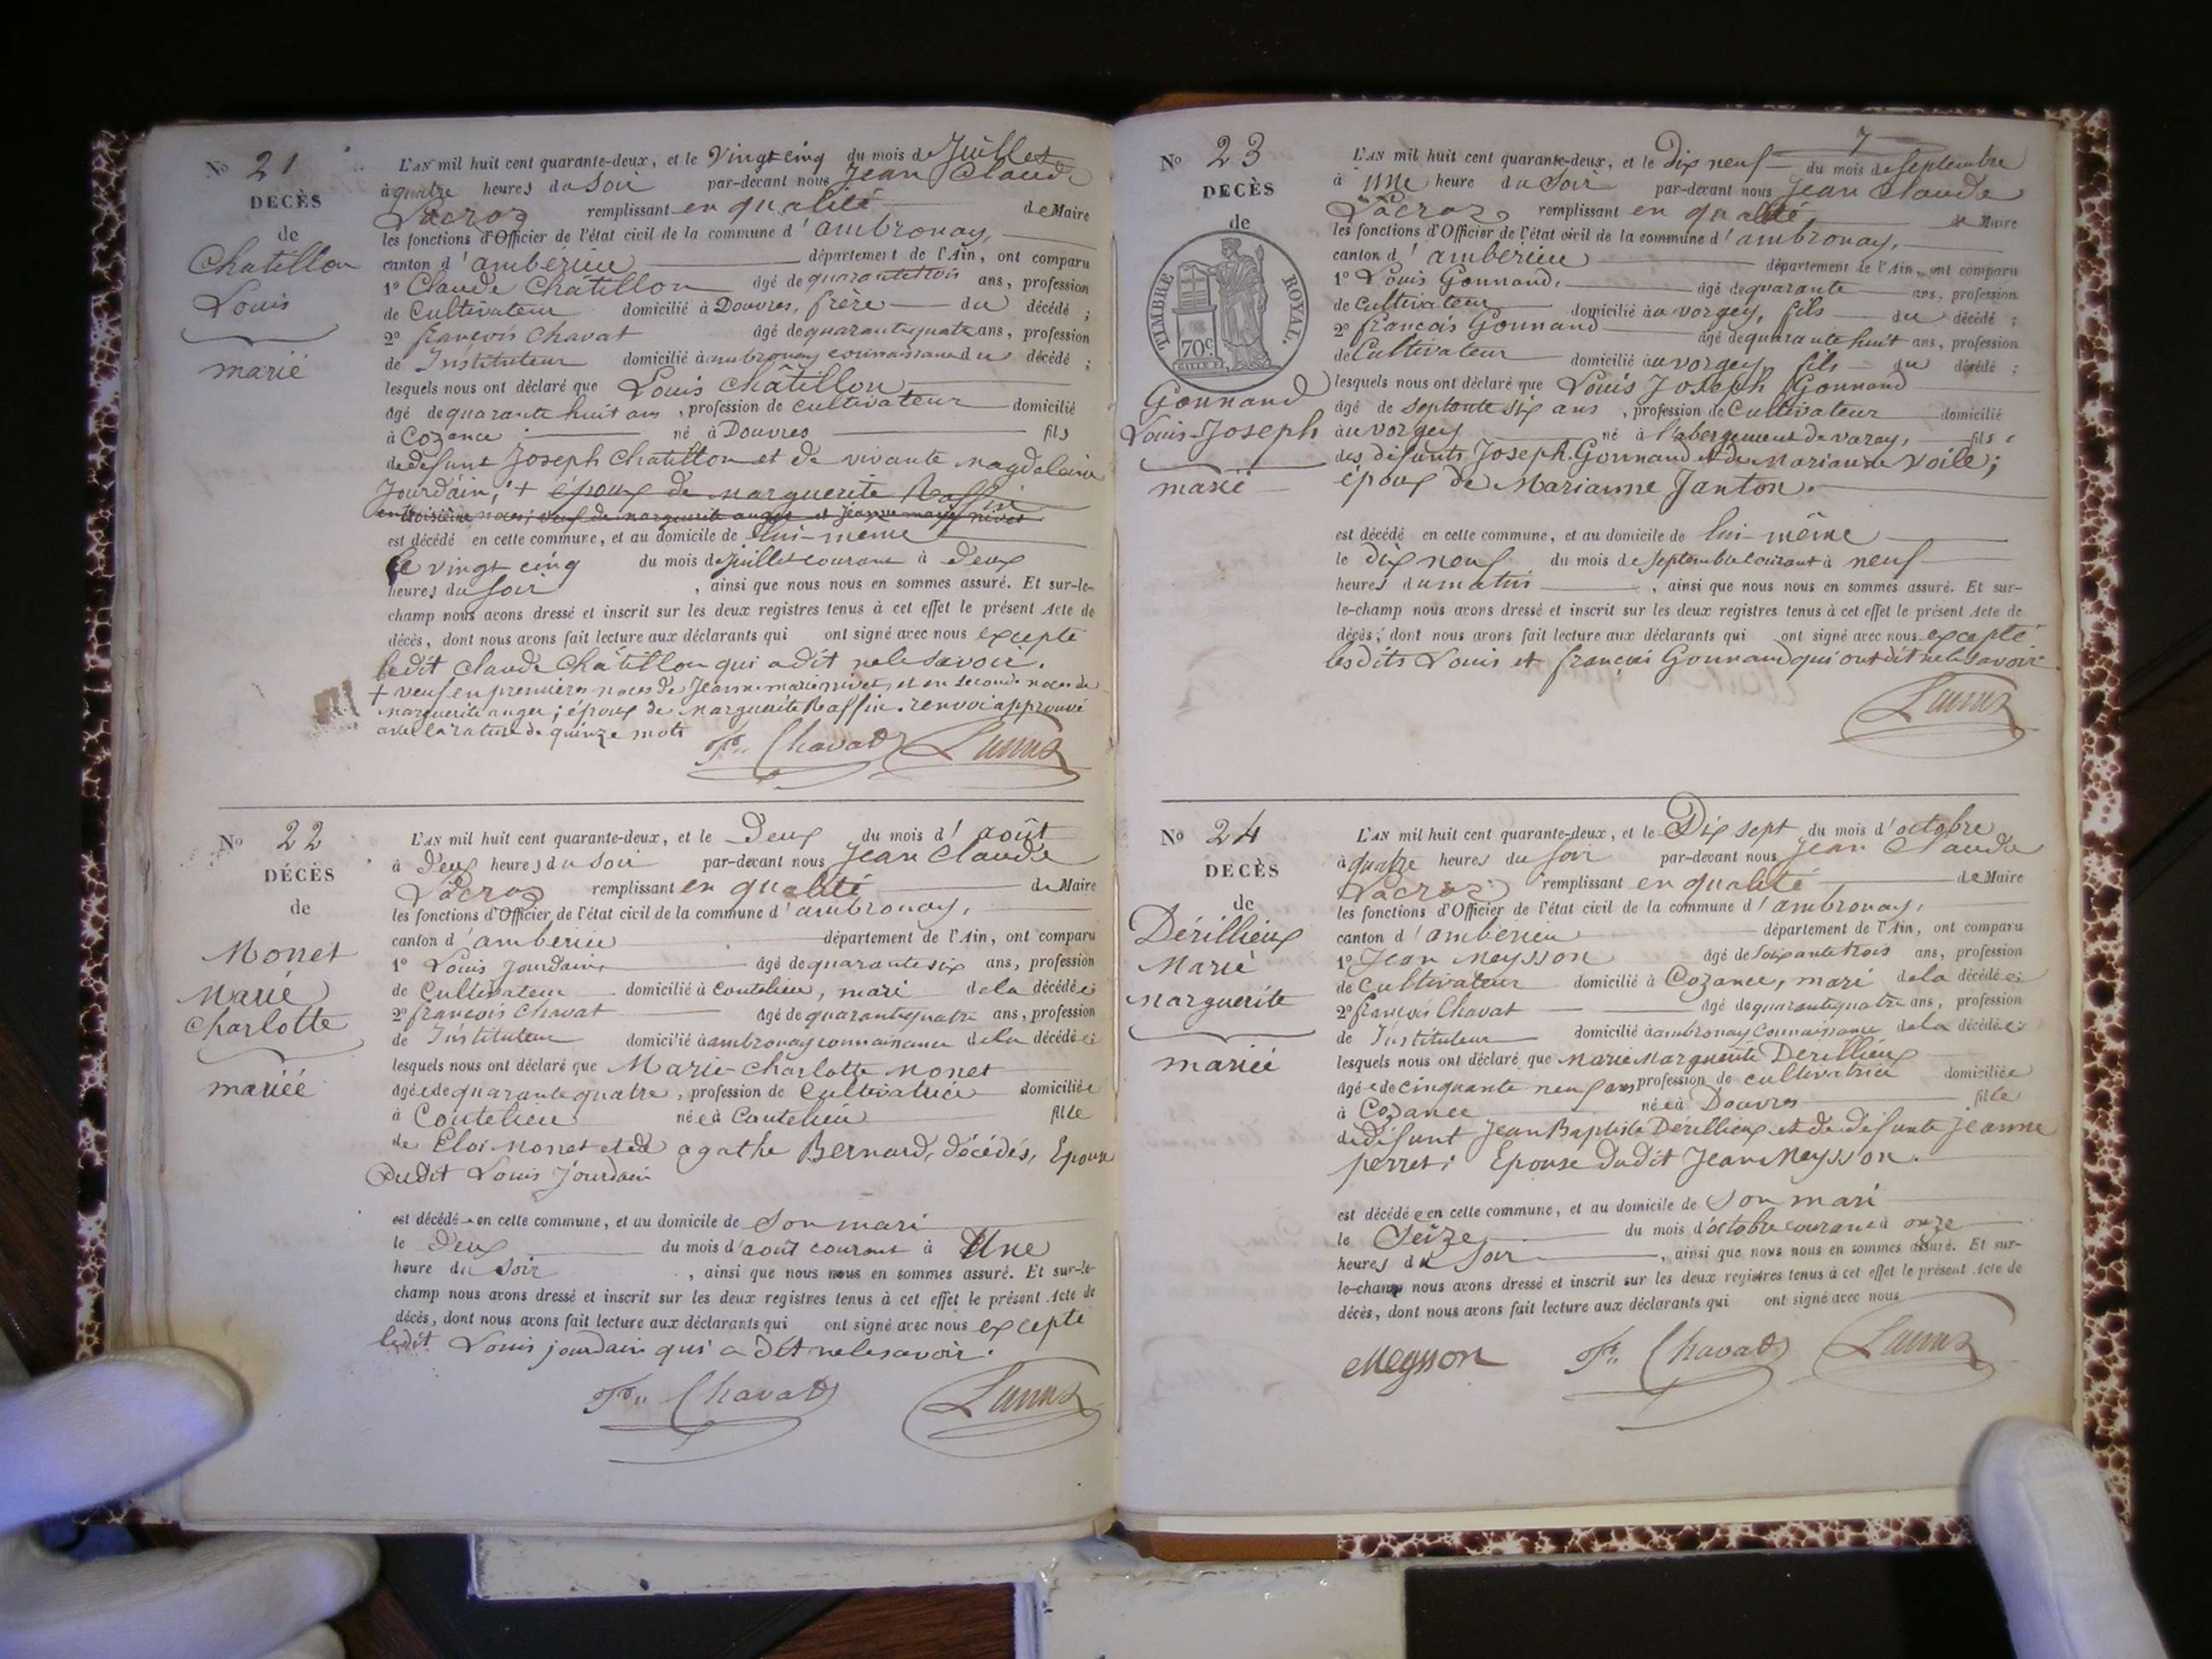 No 21
DECÈS
de
Chatillon
Louis
marié
L'AN mil huit cent quarante-deux, et le Vingt cinq du mois de Juillet
à quatre heures du Soir par-devant nous Jean Claude
Lacroz remplissant en qualité de Maire
les fonctions d'Officier de l'état civil de la commune d'ambronay,
canton d'ambérieu département de l'Ain, ont comparu
1º Claude Châtillon âgé de quarante trois ans, profession
de Cultivateur domicilié à Douvres, frère du décédé ;
2º françois Chavat âgé de quarante quatre ans, profession
de Instituteur domicilié à ambronay connaissance du décédé ;
lesquels nous ont déclaré que Louis Châtillon
âgé de quarante huit ans, profession de cultivateur domicilié
à Cozance né à Douvres fils
de défunt Joseph Chatillon et de vivante Magdelaine
Jourdain, + époux de Marguerite Raffin
en troisième noces; veuf de marguerite auger et Jeanne marie nivet
est décédé en cette commune, et au domicile de lui-même
le vingt cinq du mois de juillet courant à deux
heures du soir, ainsi que nous nous en sommes assuré. Et sur-le-
champ nous avons dressé et inscrit sur les deux registres tenus à cet effet le présent Acte de
décès, dont nous avons fait lecture aux déclarants qui ont signé avec nous excepté
ledit Claude Châtillon qui a dit ne le savoir.
+ veuf en premières noces de Jeanne marie nivet, et en seconde noces de
Marguerite auger; époux de Marguerite Raffin. renvoi approuvé
avec la rature de quinze mots
Fs. Chavat Lacroz
No 22
DÉCÈS
de
Monet
Marie
Charlotte
mariée
L'AN mil huit cent quarante-deux, et le Deux du mois d'août
à Deux heures du soir par-devant nous Jean Claude
Lacroz remplissant en qualité de Maire
les fonctions d'Officier de l'état civil de la commune d'ambronay,
canton d'ambérieu département de l'Ain, ont comparu
1º Louis Jourdain âgé de quarante six ans, profession
de Cultivateur domicilié à Coutelieu, mari de la décédée ;
2º françois Chavat âgé de quarante quatre ans, profession
de Instituteur domicilié à ambronay connaissance de la décédée ;
lesquels nous ont déclaré que Marie-Charlotte Monet
âgée de quarante quatre, profession de Cultivatrice domiciliée
à Coutelieu née à Coutelieu fille
de Eloi Monet et de agathe Bernard, décédés, Epouse
Dudit Louis Jourdain
est décédée en cette commune, et au domicile de son mari
le Deux du mois d'août courant à Une
heure du soir, ainsi que nous nous en sommes assuré. Et sur-le-
champ nous avons dressé et inscrit sur les deux registres tenus à cet effet le présent Acte de
décès, dont nous avons fait lecture aux déclarants qui ont signé avec nous excepté
ledit Louis jourdain qui a dit ne le savoir.
Fs. Chavat Lacroz
7
No 23
DECÈS
de
TIMBRE ROYAL.
70c
Gonnand
Louis-Joseph
marié
L'AN mil huit cent quarante-deux, et le Dix neuf du mois de Septembre
à une heure du Soir par-devant nous Jean Claude
Lacroz remplissant en qualité de Maire
les fonctions d'Officier de l'état civil de la commune d'ambronay,
canton d'ambérieu département de l'Ain, ont comparu
1º Louis Gonnand, âgé de quarante ans, profession
de Cultivateur domicilié au vorgey, fils du décédé ;
2º françois Gonnand âgé de quarante huit ans, profession
de Cultivateur domicilié au vorgey fils du décédé ;
lesquels nous ont déclaré que Louis Joseph Gonnand
âgé de septante six ans, profession de Cultivateur domicilié
au vorgey né à l'abergement de varey, fils
des défunts Joseph Gonnand et de Marianne Voile;
époux de Marianne Janton.
est décédé en cette commune, et au domicile de lui-même
le dix neuf du mois de septembre courant à neuf
heures du matin, ainsi que nous nous en sommes assuré. Et sur-
le-champ nous avons dressé et inscrit sur les deux registres tenus à cet effet le présent Acte de
décès, dont nous avons fait lecture aux déclarants qui ont signé avec nous excepté
lesdits Louis et françois Gonnand qui ont dit ne le savoir.
Lacroz
No 24
DECÈS
de
Dérillieux
Marie
Marguerite
mariée
L'AN mil huit cent quarante-deux, et le Dix sept du mois d'octobre
à quatre heures du soir par-devant nous Jean Claude
Lacroz remplissant en qualité de Maire
les fonctions d'Officier de l'état civil de la commune d'ambronay,
canton d'ambérieu département de l'Ain, ont comparu
1º Jean Meysson âgé de soixante trois ans, profession
de Cultivateur domicilié à Cozance, mari de la décédée ;
2º françois Chavat âgé de quarante quatre ans, profession
de Instituteur domicilié à ambronay connaissance de la décédée ;
lesquels nous ont déclaré que Marie Marguerite Derillieux
âgée de cinquante neuf ans profession de cultivatrice domiciliée
à Cozance née à Douvres fille
de défunt Jean Baptiste Derillieux et de défunte Jeanne
perret; Epouse Dudit Jean Meysson.
est décédée en cette commune, et au domicile de son mari
le Seize du mois d'octobre courant à onze
heures du soir, ainsi que nous nous en sommes assuré. Et sur-
le-champ nous avons dressé et inscrit sur les deux registres tenus à cet effet le présent Acte de
décès, dont nous avons fait lecture aux déclarants qui ont signé avec nous
Meysson Fs. Chavat Lacroz